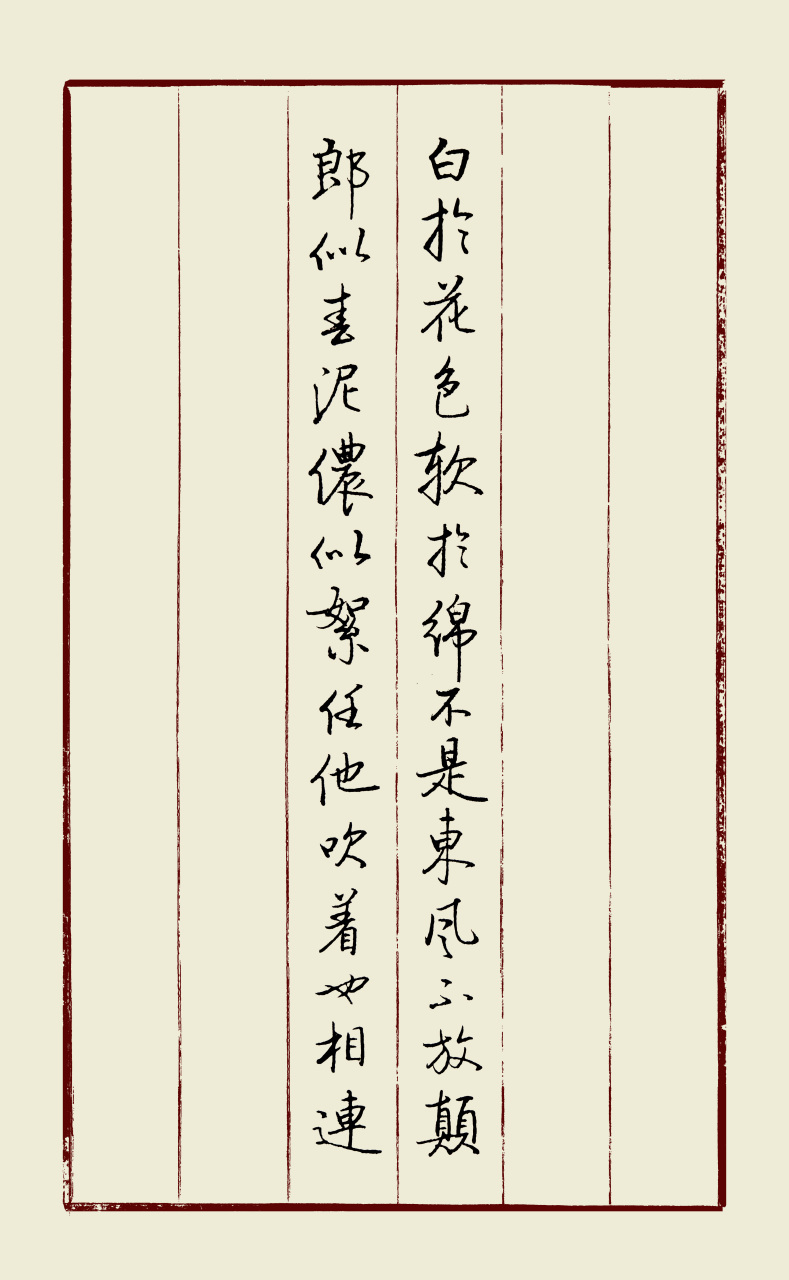 白於花色軟於綿不是東風不放顛
郎似春泥儂似絮任他吹着也相連